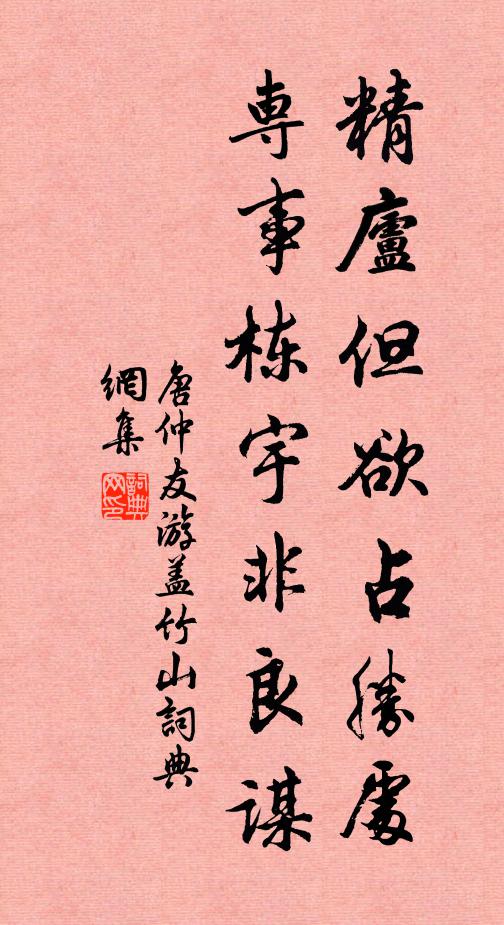 精廬但欲占勝處
専事栋宇非良謀
唐仲友游盖竹山詞典
網集
詞典
网印